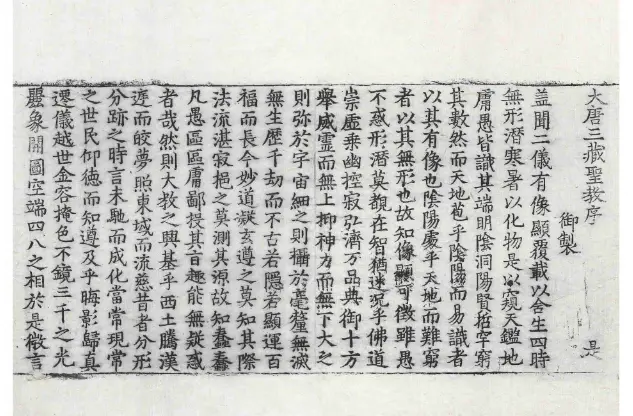 大唐三藏聖教序 是
御製
蓋聞二儀有像顯覆載以含生四時
無形潛寒暑以化物是以窺天鑑地
庸愚皆識其端明陰洞陽賢哲罕窮
其數然而天地苞乎陰陽而易識者
以其有像也陰陽處乎天地而難窮
者以其無形也故知像顯可徵雖愚
不惑形潛莫覩在智猶迷況乎佛道
崇虛乘幽控寂弘濟万品典御十方
舉威靈而無上抑神力而無下大之
則弥於宇宙細之則攝於毫釐無滅
無生歷千劫而不古若隱若顯運百
福而長今妙道凝玄遵之莫知其際
法流湛寂挹之莫測其源故知蠢蠢
凡愚區區庸鄙投其旨趣能無疑惑
者哉然則大教之興基乎西土騰漢
庭而皎夢照東域而流慈昔者分形
分跡之時言未馳而成化當常現常
之世民仰德而知遵及乎晦影歸真
遷儀越世金容掩色不鏡三千之光
麗象開圖空端四八之相於是微言